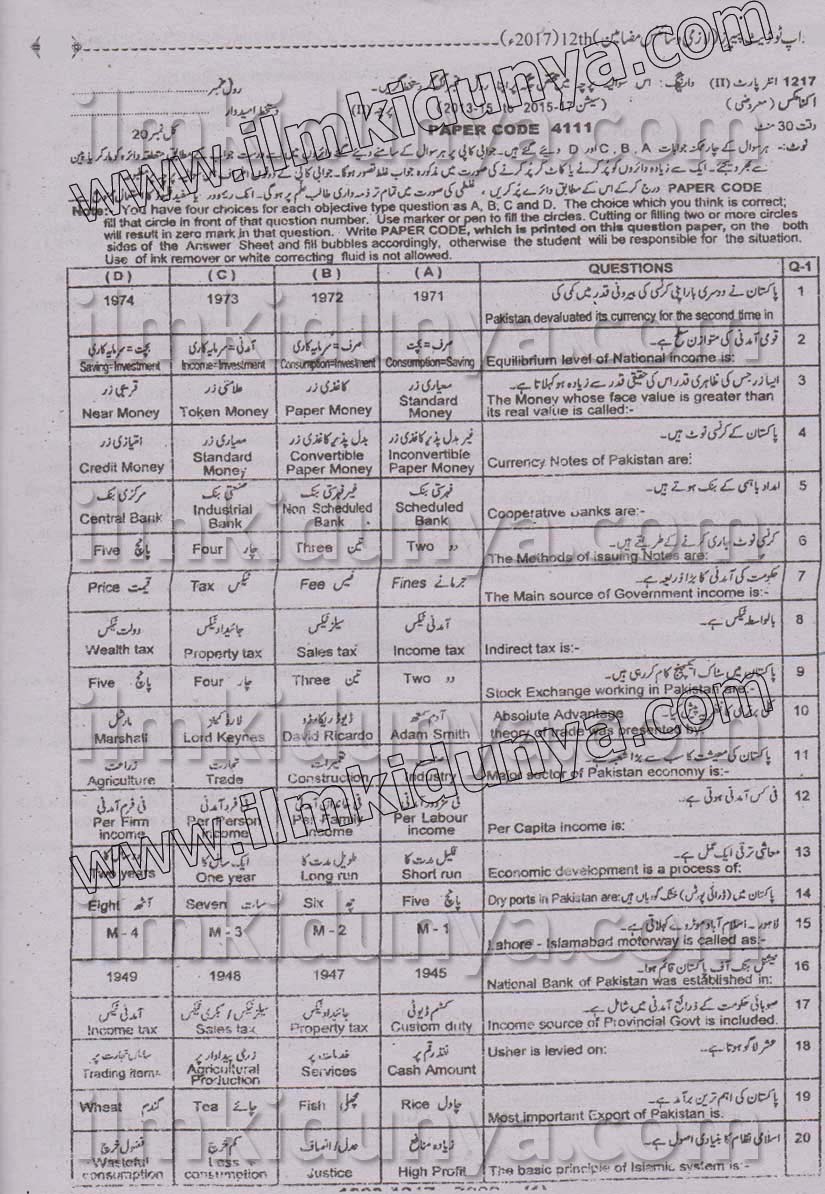 اپ ٹو ڈیٹ پیپرز (لازمی و سائنس مضامین) 12th (2017ء)
1217 انٹر پارٹ (II) وارننگ: اس سوالیہ پرچہ
رول نمبر
اکنامکس (معروضی)
(سیشن 2013-15 to 2015-17)
(II)
دستخط امیدوار
وقت 30 منٹ
PAPER CODE 4111
کل نمبر 20
PAPER CODE
Note:- You have four choices for each objective type question as A, B, C and D. The choice which you think is correct;
fill that circle in front of that question number. Use marker or pen to fill the circles. Cutting or filling two or more circles
will result in zero mark in that question. Write PAPER CODE, which is printed on this question paper, on the both
sides of the Answer Sheet and fill bubbles accordingly, otherwise the student will be responsible for the situation.
Use of ink remover or white correcting fluid is not allowed.
(D) (C) (B) (A) QUESTIONS Q-1
پاکستان نے دوسری بار اپنی کرنسی کی بیرونی قدر میں کمی کی
1974 1973 1972 1971 Pakistan devaluated its currency for the second time in 1
بچت=سرمایہ کاری آمدنی=سرمایہ کاری صرف=سرمایہ کاری صرف=بچت قومی آمدنی کی متوازن سطح ہے۔
Saving=Investment Income=Investment Consumption=Investment Consumption=Saving Equilibrium level of National income is: 2
قریبی زر علامتی زر کاغذی زر معیاری زر ایسا زر جس کی ظاہری قدر اس کی حقیقی قدر سے زیادہ ہو کہلاتا ہے۔
Near Money Token Money Paper Money Standard Money The Money whose face value is greater than 3
its real value is called:-
اعتباری زر معیاری زر بدل پذیر کاغذی زر غیر بدل پذیر کاغذی زر پاکستان کے کرنسی نوٹ ہیں۔
Credit Money Standard Money Convertible Paper Money Inconvertible Paper Money Currency Notes of Pakistan are: 4
مرکزی بنک صنعتی بنک غیر فہرستی بنک فہرستی بنک امداد باہمی کے بنک ہوتے ہیں۔
Central Bank Industrial Bank Non Scheduled Bank Scheduled Bank Cooperative Banks are:- 5
کرنسی نوٹ جاری کرنے کے طریقے ہیں۔
Five پانچ Four چار Three تین Two دو The Methods of issuing Notes are: 6
حکومت کی آمدنی کا بڑا ذریعہ ہے۔
Price قیمت Tax ٹیکس Fee فیس Fines جرمانے The Main source of Government income is:- 7
دولت ٹیکس جائیداد ٹیکس سیلز ٹیکس آمدنی ٹیکس بالواسطہ ٹیکس ہے۔
Wealth tax Property tax Sales tax Income tax Indirect tax is:- 8
پاکستان میں سٹاک ایکسچینج کام کر رہی ہیں۔
Five پانچ Four چار Three تین Two دو Stock Exchange working in Pakistan are:- 9
مارشل لارڈ کینز ڈیوڈ ریکارڈو آدم سمتھ
Marshall Lord Keynes David Ricardo Adam Smith Absolute Advantage 10
theory of trade was presented by:
زراعت تجارت تعمیرات پاکستان کی معیشت کا سب سے بڑا شعبہ ہے۔
Agriculture Trade Construction Industry Major sector of Pakistan economy is:- 11
فی فرم آمدنی فی مزدور آمدنی فی کس آمدنی ہوتی ہے۔
Per Firm income Per Person Income Per Family Income Per Labour income Per Capita income is: 12
ایک سال کا طویل مدت کا قلیل مدت کا معاشی ترقی ایک عمل ہے۔
Two years One year Long run Short run Economic development is a process of: 13
Eight آٹھ Seven سات Six چھ Five پانچ Dry ports in Pakistan are: پاکستان میں (ڈرائی پورٹس) خشک گودیاں ہیں 14
لاہور۔ اسلام آباد موٹروے کہلاتی ہے۔
M - 4 M - 3 M - 2 M - 1 Lahore - Islamabad motorway is called as:- 15
نیشنل بنک آف پاکستان قائم ہوا۔
1949 1948 1947 1945 National Bank of Pakistan was established in: 16
آمدنی ٹیکس سیلز ٹیکس / بکری ٹیکس جائیداد ٹیکس کسٹم ڈیوٹی صوبائی حکومت کے ذرائع آمدنی میں شامل ہے۔
Income tax Sales tax Property tax Custom duty Income source of Provincial Govt is included. 17
سامان تجارت پر زرعی پیداوار پر خدمات پر نقد رقم پر عشر لاگو ہوتا ہے۔
Trading items Agricultural Production Services Cash Amount Usher is levied on: 18
پاکستان کی اہم ترین برآمد ہے۔
Wheat گندم Tea چائے Fish مچھلی Rice چاول Most important Export of Pakistan is. 19
فضول خرچ کم خرچ عدل / انصاف زیادہ منافع اسلامی نظام کا بنیادی اصول ہے۔
Wasteful consumption Less consumption Justice High Profit The basic principle of Islamic system is:- 20
www.ilmkidunya.com
www.ilmkidunya.com